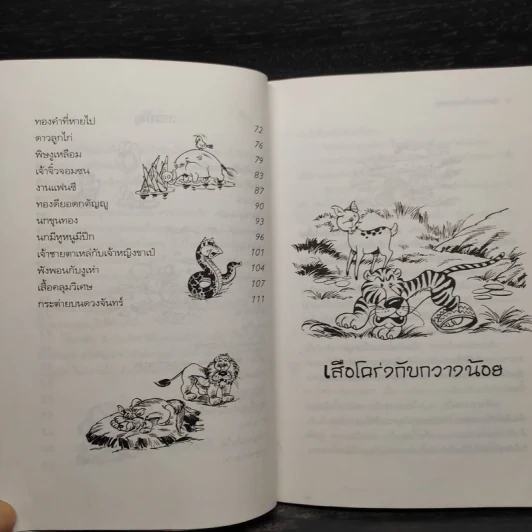 ทองคำที่หายไป 72
ดาวลูกไก่ 76
พิษงูเหลือม 79
เจ้าจิ๋วจอมซน 83
งานแฟนซี 87
ทองดียอดกตัญญู 90
นกขุนทอง 93
นกมีหูหนูมีปีก 96
เจ้าชายตาเหล่กับเจ้าหญิงขาเป๋ 101
พังพอนกับงูเห่า 104
เสื้อคลุมวิเศษ 107
กระต่ายบนดวงจันทร์ 111
เสือโคร่งกับกวางน้อย